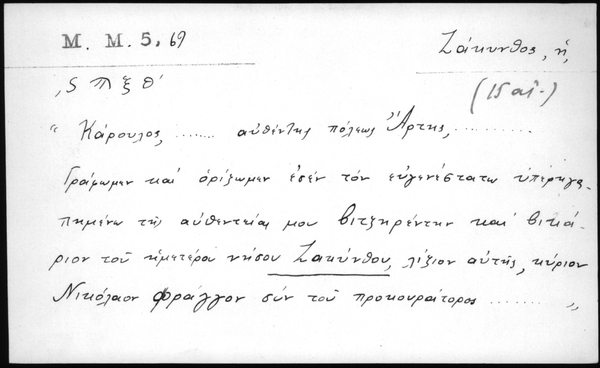 M. M. 5, 69
Ζάκυνθος, ἡ,
(15 αἰ.)
,ς Π ξ θ'
"Κάρουλος, ....... αὐθέντης πόλεως Ἄρτης, .........
Γράφωμεν καὶ ὁρίζωμεν ἐσέν τόν εὐγενέστατω ὑπερηγα-
πημένω τῆς αὐθεντείας μου βιτζηρέντην καὶ βικά-
ριον τοῦ ἡμετέρα νήσου Ζακύνθου, λίζιον αὐτῆς, κύριον
Νικόλαον Φράγγον σύν τοῦ προκουράτορος ........ "